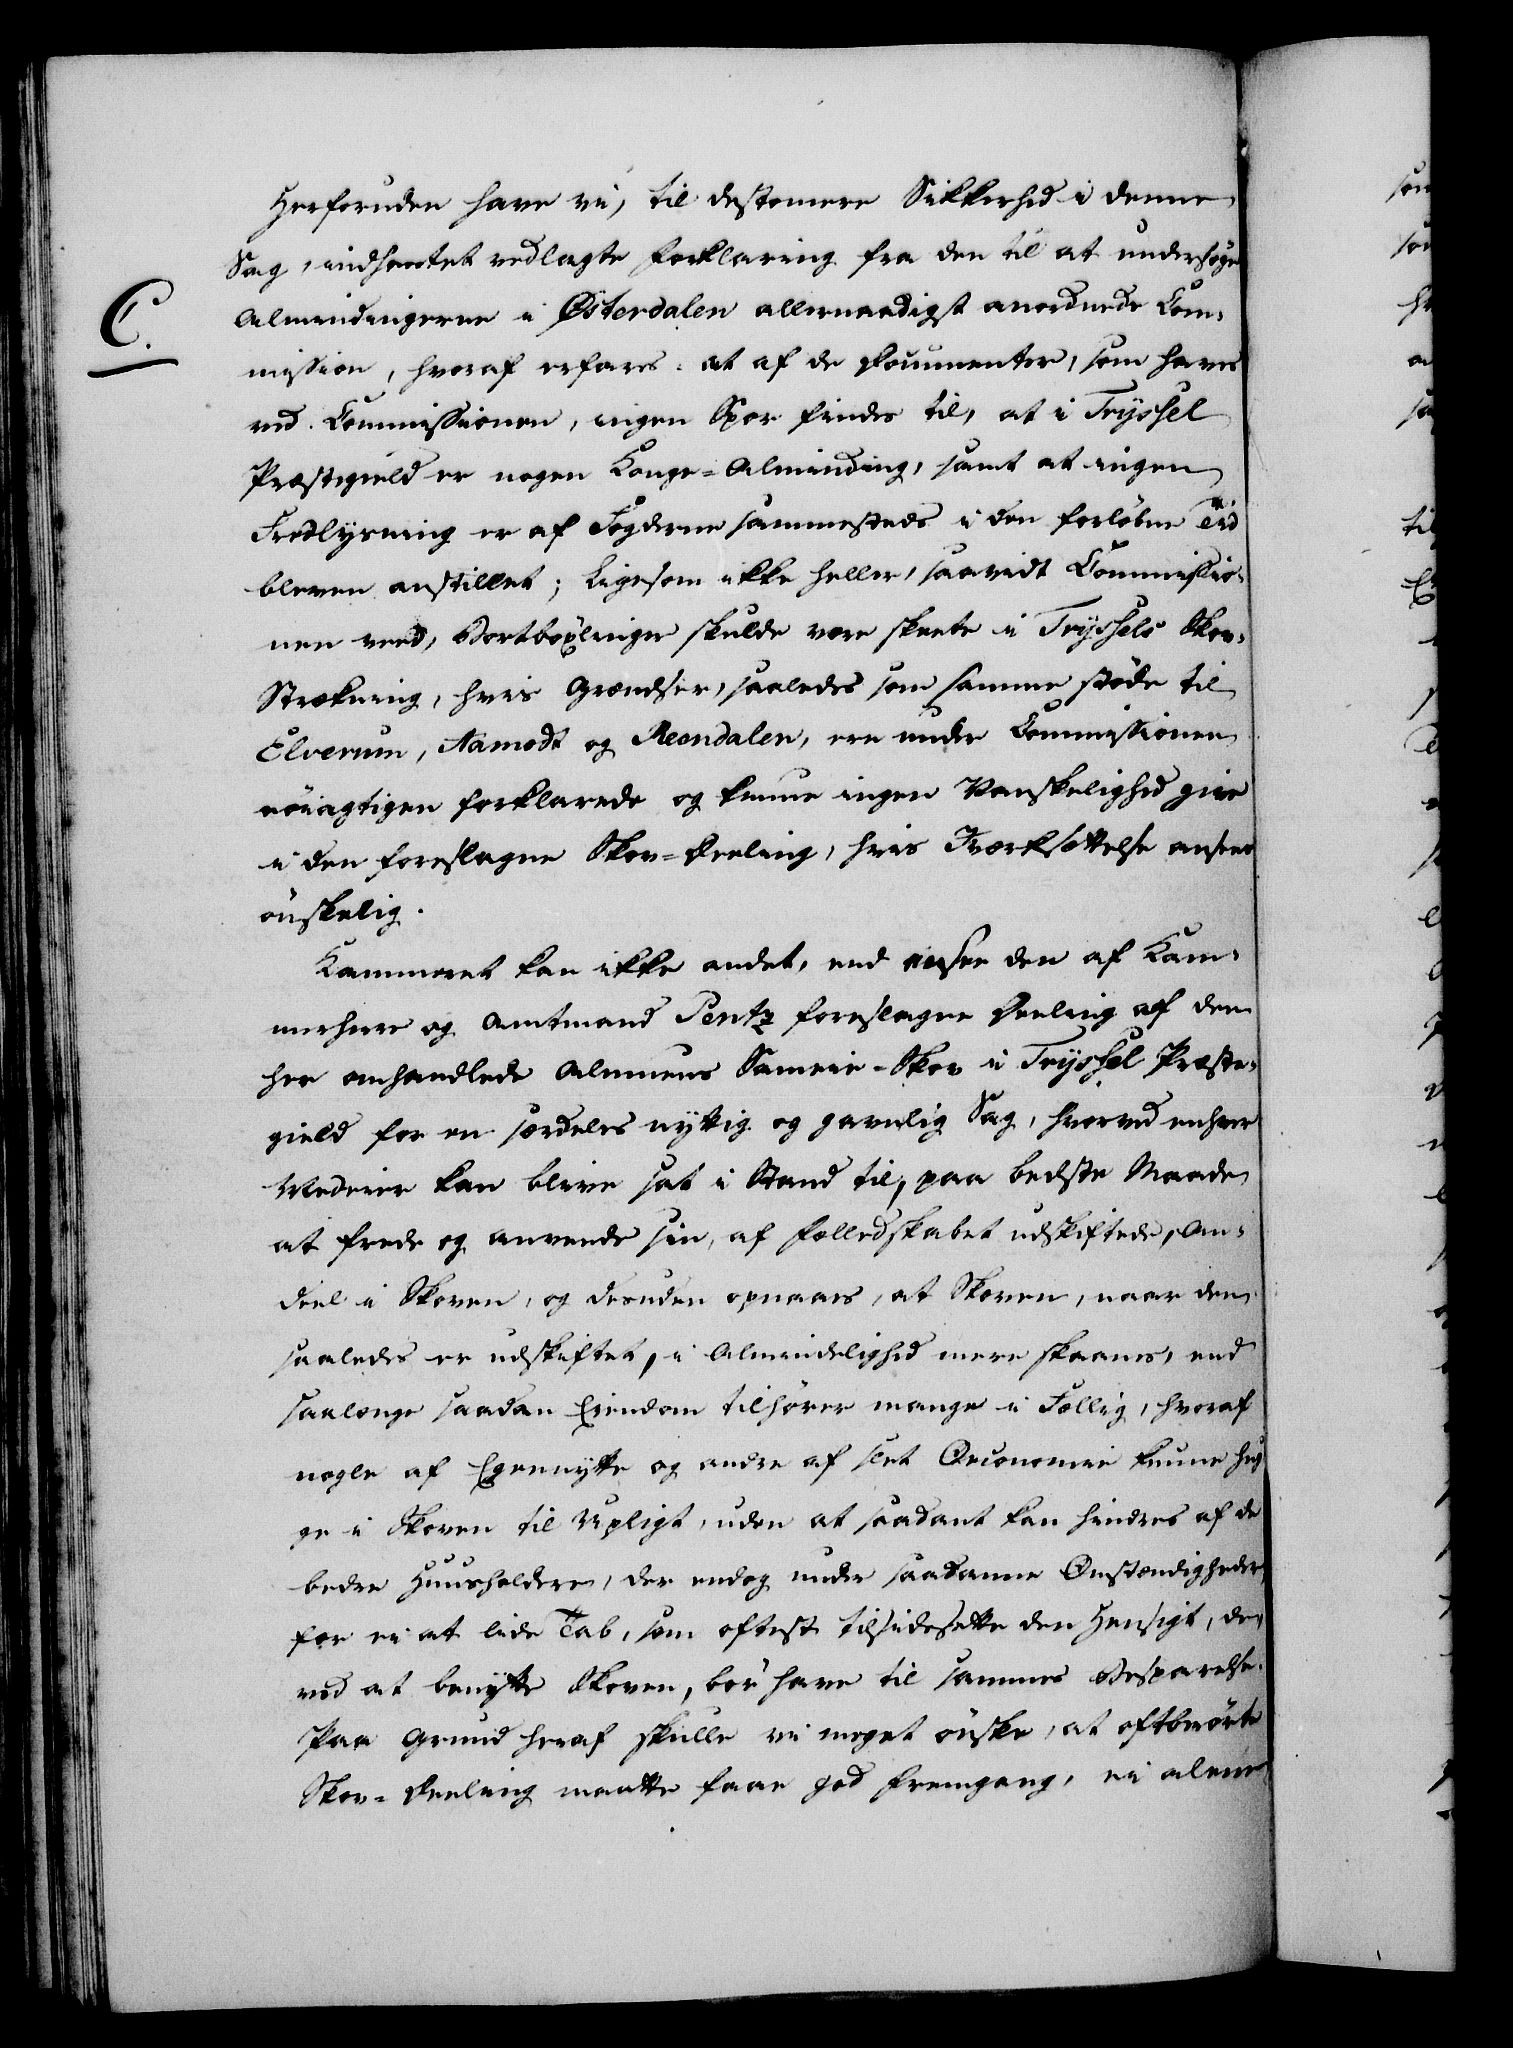 Herforuden have vi, til destomere Sikkerhed i denne
Sag, indhentet vedlagte Forklaring fra den til at undersøge
C.
Almindingerne i Østerdalen allernaadigst anordnede Com-
mission, hvoraf erfares: at af de Documenter, som haves
ved Commissionen, ingen Spor findes til, at i Tryssel
Præstegield er nogen Konge-Alminding, samt at ingen
Fredlysning er af Fogderne sammesteds i den forløbne Tid
bleven anstillet; ligesom ikke heller, saavidt Commissio-
nen veed, Bortbøxlinger skulde være skeete i Tryssels Skov-
Strækning, hvis Grændser, saaledes som samme støde til
Elverum, Aamodt og Reendalen, ere under Commissionen
nøiagtigen forklarede og kunne ingen Vanskelighed give
i den foreslagne Skov-Deeling, hvis Iværksættelse ansees
ønskelig.
Kammeret kan ikke andet, end ansee den af Kam-
merherre og Amtmand Pentz foreslagne Deeling af den
her omhandlede Almuens Sameie-Skov i Tryssel Præste-
gield for en særdeles nyttig og gavnlig Sag, hvorved enhver
Medeier kan blive sat i Stand til, paa bedste Maade
at frede og anvende sin, af Fælledskabet udskiftede, An-
deel i Skoven, og desuden opnaaes, at Skoven, naar den
saaledes er udskiftet, i Almindelighed mere skaanes, end
saalænge saadan Eiendom tilhører mange i Fællig, hvoraf
nogle af Egennytte og andre af slet Oeconomie kunne hug-
ge i Skoven til Upligt, uden at saadant kan hindres af de
bedre Huusholdere, der endog under saadanne Omstændigheder,
for ei at lide Tab, som oftest tilsidesætte den Hensigt, de,
ved at benytte Skoven, bør have til sammes Besparelse.
Paa Grund heraf skulle vi meget ønske, at oftberørte
Skov-Deeling maatte faae god Fremgang, ei alene